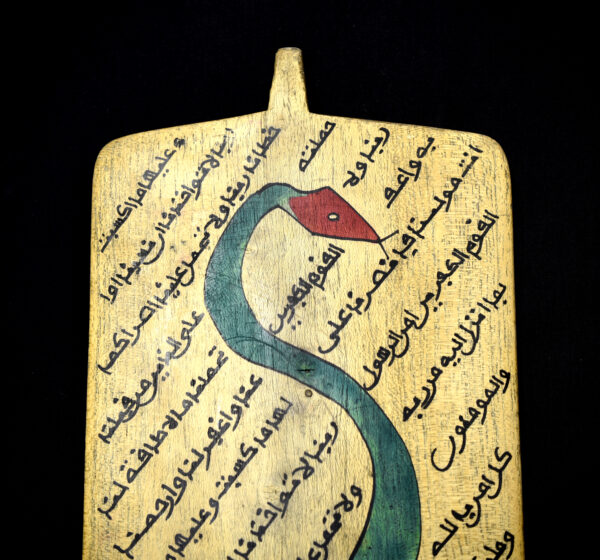 وعليها ما اكتسبت
ربنا لا تواخذنا ان نسينا اوا
خطانا ربنا ولا تحمل علينا اصرا كما
حملته
على الذين من قبلنا
ربنا ولا
تحملنا ما لا طاقة لنا
به واعف
عنا واغفر لنا وارحمنا
انت مولينا فانصرنا على
القوم الكفرين
القوم الكفرين امن الرسول
بما انزل اليه من ربه
والمومنون
كل امن بالله
لها ما كسبت وعليها
ربنا لا تواخذنا
ولا تحمل